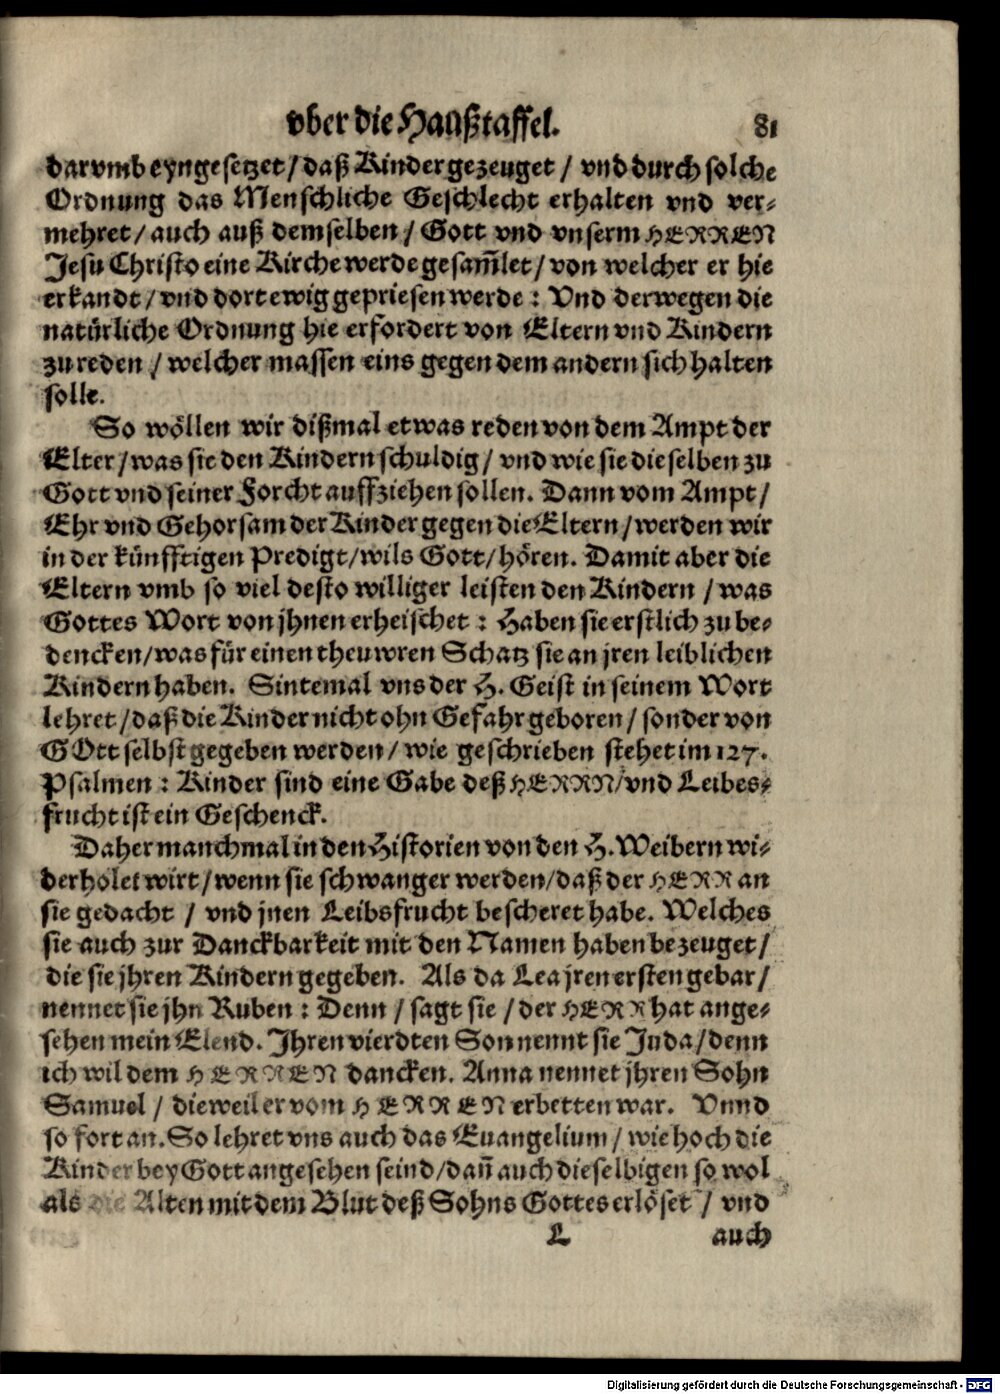 vber die Haußtaffel. 81
darvmb eyngesetzet / daß Kinder gezeuget / vnd durch solche
Ordnung das Menschliche Geschlecht erhalten vnd ver-
mehret / auch auß demselben / Gott vnd vnserm HERREN
Jesu Christo eine Kirche werde gesam̃let / von welcher er hie
erkandt / vnd dort ewig gepriesen werde : Vnd derwegen die
natürliche Ordnung hie erfordert von Eltern vnd Kindern
zu reden / welcher massen eins gegen dem andern sich halten
solle.
So wöllen wir dißmal etwas reden von dem Ampt der
Elter / was sie den Kindern schuldig / vnd wie sie dieselben zu
Gott vnd seiner Forcht auffziehen sollen. Dann vom Ampt /
Ehr vnd Gehorsam der Kinder gegen die Eltern / werden wir
in der künfftigen Predigt / wils Gott / hören. Damit aber die
Eltern vmb so viel desto williger leisten den Kindern / was
Gottes Wort von jhnen erheischet : Haben sie erstlich zu be-
dencken / was für einen theuwren Schatz sie an jren leiblichen
Kindern haben. Sintemal vns der H. Geist in seinem Wort
lehret / daß die Kinder nicht ohn Gefahr geboren / sonder von
GOtt selbst gegeben werden / wie geschrieben stehet im 127.
Psalmen : Kinder sind eine Gabe deß HERRN / vnd Leibes-
frucht ist ein Geschenck.
Daher manchmal in den Historien von den H. Weibern wi-
derholet wirt / wenn sie schwanger werden / daß der HERR an
sie gedacht / vnd jnen Leibsfrucht bescheret habe. Welches
sie auch zur Danckbarkeit mit den Namen haben bezeuget /
die sie jhren Kindern gegeben. Als da Lea jren ersten gebar /
nennet sie jhn Ruben : Denn / sagt sie / der HERR hat ange-
sehen mein Elend. Ihren vierdten Son nennt sie Juda / denn
ich wil dem HERREN dancken. Anna nennet jhren Sohn
Samuel / dieweil er vom HERREN erbetten war. Vnnd
so fort an. So lehret vns auch das Euangelium / wie hoch die
Kinder bey Gott angesehen seind / dañ auch dieselbigen so wol
als die Alten mit dem Blut deß Sohns Gottes erlöset / vnd
L auch
Digitalisierung gefördert durch die Deutsche Forschungsgemeinschaft - DFG